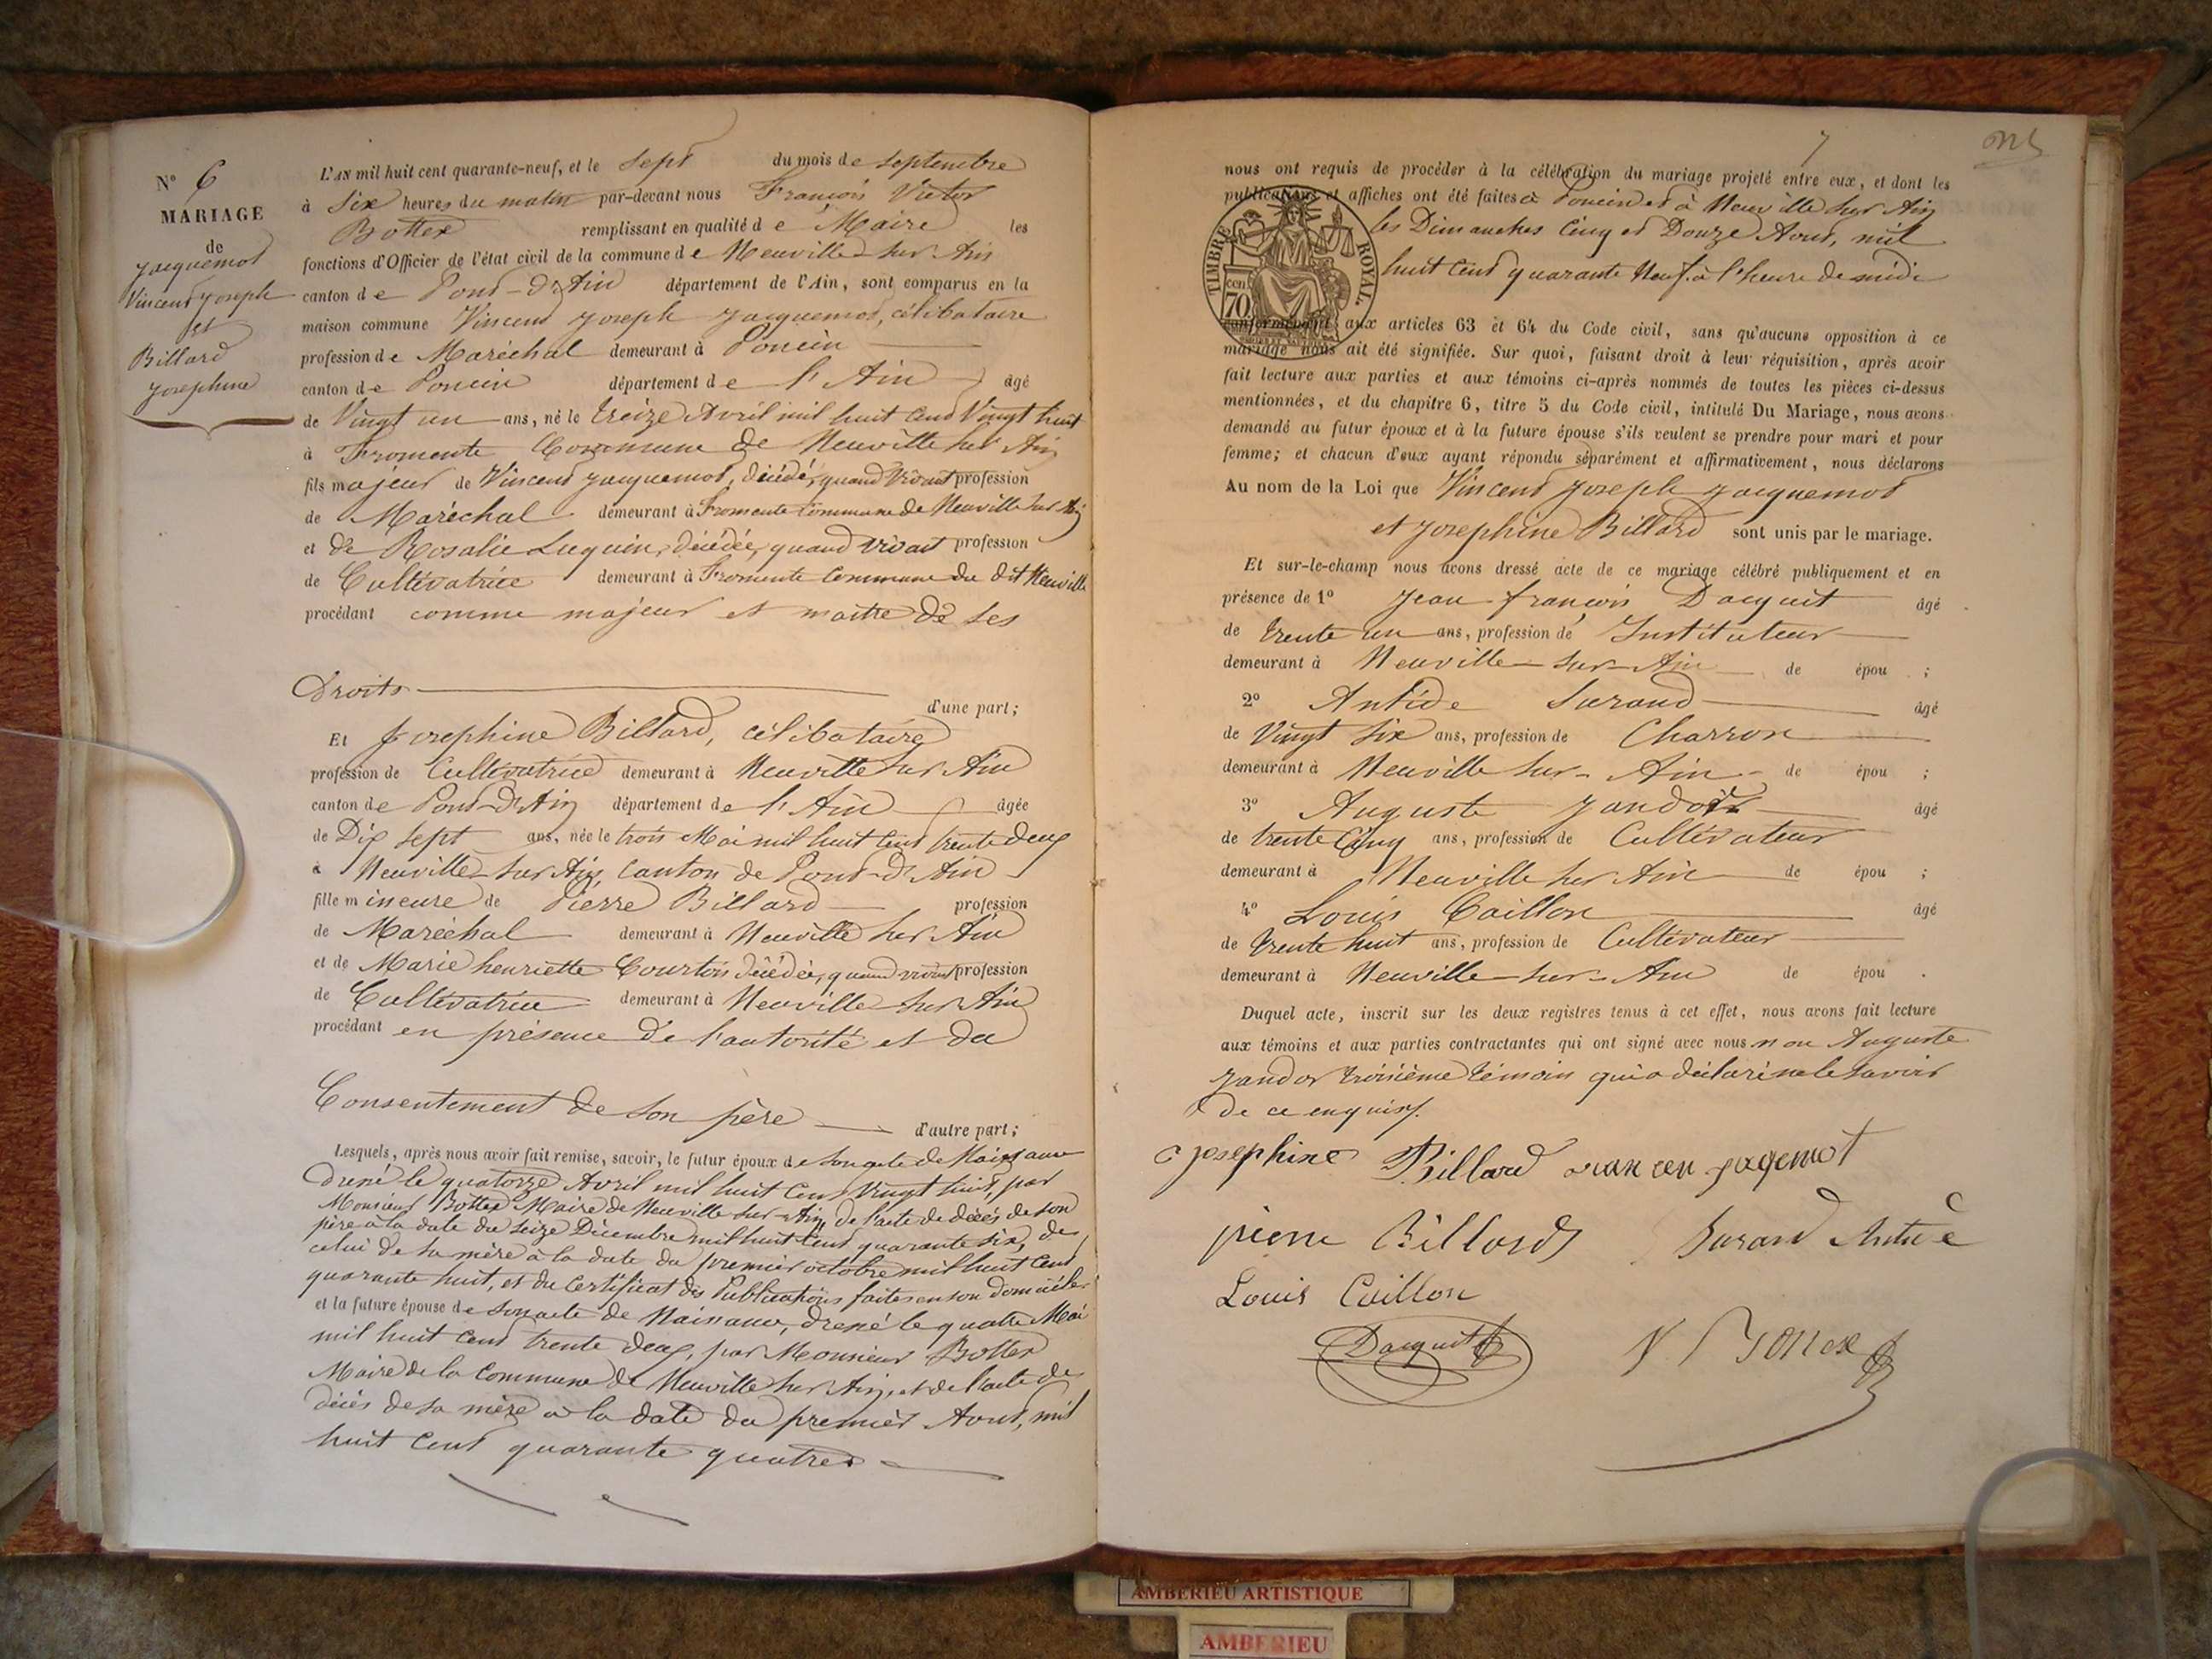 N° 6
MARIAGE
de
Jacquemot
Vincent Joseph
et
Billard
Josephine
L'AN mil huit cent quarante-neuf, et le Sept du mois de Septembre
à Six heures du matin par-devant nous François Victor
Bottex remplissant en qualité de Maire les
fonctions d'Officier de l'état civil de la commune de Neuville sur Ain
canton de Pont-d'Ain département de l'Ain, sont comparus en la
maison commune Vincent Joseph Jacquemot, célibataire
profession de Maréchal demeurant à Poncin
canton de Poncin département de l'Ain âgé
de Vingt un ans, né le treize Avril mil huit Cent Vingt huit
à Fromente Commune de Neuville sur Ain
fils majeur de Vincent Jacquemot, décédé, quand vivant profession
de Maréchal demeurant à Fromente Commune de Neuville sur Ain
et de Rosalie Luquin, décédée, quand vivait profession
de Cultivatrice demeurant à Fromente Commune du dit Neuville
procédant comme majeur et maître de ses
Droits d'une part;
Et Josephine Billard, célibataire
profession de Cultivatrice demeurant à Neuville sur Ain
canton de Pont-d'Ain département de l'Ain âgée
de Dix Sept ans, née le trois Mai mil huit Cent trente deux
à Neuville sur Ain Canton de Pont-d'Ain
fille mineure de Pierre Billard profession
de Maréchal demeurant à Neuville sur Ain
et de Marie henriette Courtois décédée, quand vivait profession
de Cultivatrice demeurant à Neuville sur Ain
procédant en présence de l'autorité et du
Consentement de son père d'autre part;
Lesquels, après nous avoir fait remise, savoir, le futur époux de son acte de Naissance
dressé le quatorze Avril mil huit Cent Vingt huit, par
Monsieur Bottex Maire de Neuville sur-Ain, de l'acte de décès de son
père à la date du seize Décembre mil huit Cent quarante six, de
celui de sa mère à la date du premier octobre mil huit Cent
quarante huit, et du Certificat des Publications faites en son domicile
et la future épouse de son acte de Naissance, dressé le quatre Mai
mil huit Cent trente deux, par Monsieur Bottex
Maire de la Commune de Neuville sur Ain, et de l'acte de
décès de sa mère à la date du premier Aout, mil
huit Cent quarante quatre
7
nous ont requis de procéder à la célébration du mariage projeté entre eux, et dont les
publications et affiches ont été faites à Poncin et à Neuville sur Ain
les Dimanches Cinq et Douze Aout, mil
huit Cent quarante Neuf à l'heure de midi
TIMBRE ROYAL.
cen 70
conformément aux articles 63 et 64 du Code civil, sans qu'aucune opposition à ce
mariage nous ait été signifiée. Sur quoi, faisant droit à leur réquisition, après avoir
fait lecture aux parties et aux témoins ci-après nommés de toutes les pièces ci-dessus
mentionnées, et du chapitre 6, titre 5 du Code civil, intitulé Du Mariage, nous avons
demandé au futur époux et à la future épouse s'ils veulent se prendre pour mari et pour
femme; et chacun d'eux ayant répondu séparément et affirmativement, nous déclarons
Au nom de la Loi que Vincent Joseph Jacquemot
et Josephine Billard sont unis par le mariage.
Et sur-le-champ nous avons dressé acte de ce mariage célébré publiquement et en
présence de 1° Jean françois Dacquit âgé
de trente un ans, profession de Instituteur
demeurant à Neuville-sur-Ain de épou ;
2° Antide Surand âgé
de Vingt Six ans, profession de Charron
demeurant à Neuville sur-Ain de épou ;
3° Auguste Jandor âgé
de trente Cinq ans, profession de Cultivateur
demeurant à Neuville sur Ain de épou ;
4° Louis Caillon âgé
de trente huit ans, profession de Cultivateur
demeurant à Neuville-sur-Ain de épou .
Duquel acte, inscrit sur les deux registres tenus à cet effet, nous avons fait lecture
aux témoins et aux parties contractantes qui ont signé avec nous non Auguste
Jandor troisième témoin qui a déclaré ne le savoir
de ce enquis.
Josephine Billard vian cen jagemot
pierre Billard Surand Antide
Louis Caillon
Dacquit V. Bottex
AMBERIEU ARTISTIQUE
AMBERIEU